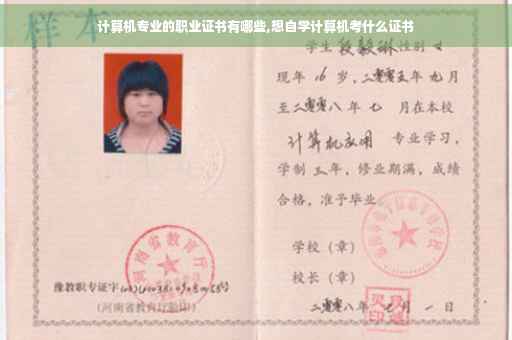 计算机专业的职业证书有哪些,想自学计算机考什么证书
样本
学生 段毅琳 性别 女
现年 16 岁,二零零五年 九月
至二零零八年 七 月在本校
计算机应用 专业学习,
学制 三年,修业期满,成绩
合格,准予毕业
学校(章)
校长(章)
二零零八年 七 月 一 日
河南省教育厅
豫教职专证字
(河南省教育厅验印)